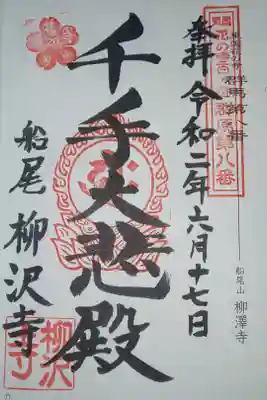 奉拝 令和二年六月十七日
千手大悲殿
船尾 柳沢寺
第八番
船尾山 柳澤寺
柳沢寺